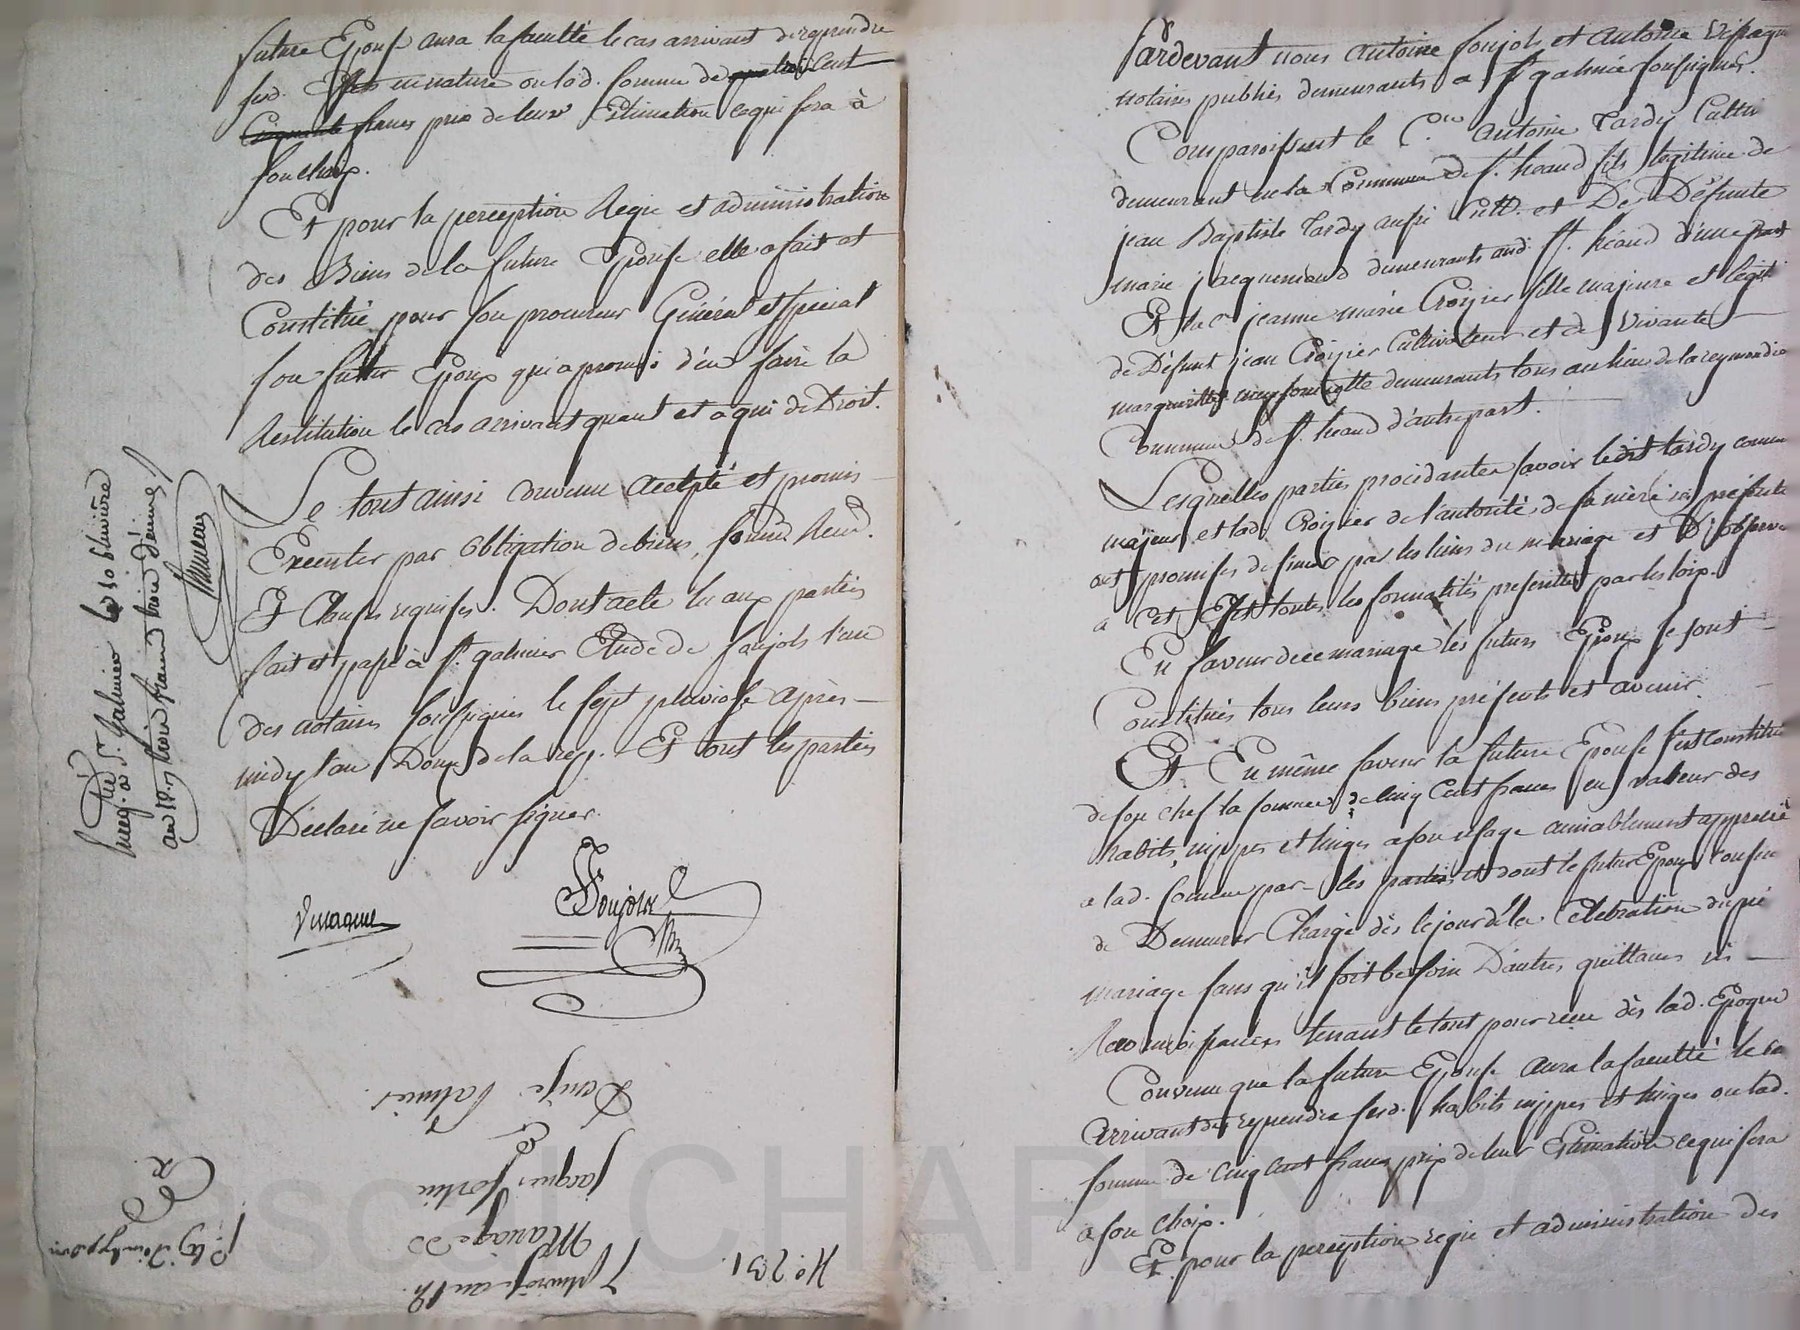 future Epouse aura la faculté le cas arrivant de reprendre
sesd. Effets en nature ou lad. somme de quatre cent
Cinquante francs prix de leur Estimation ce qui sera à
son choix.
Et pour la perception Regie et administration
des Biens de la future Epouse elle a fait et
Constitué pour son procureur Général et special
son futur Epoux qui a promis d'en faire la
Restitution le cas arrivant quant et a qui de Droit.
Le tout ainsi convenu accepté et promis
Executer par obligation de biens, soumis. Renon.
Et Clauses requises. Dont acte lu aux parties
fait et passé à St. galmier Etude de Soujols l'un
des notaires soussignés le sept pluviose après
midy l'an Douze de la rep. Et ont les parties
Déclaré ne savoir signer.
Vinagnie
Soujols
Enreg. à St. Galmier le 10 pluviôse
an 12, Reçu trois francs trois décimes
N.o 231.
7 pluviose an 12.
Mariage de
Jacques fortin
&
Denise Palmier
Pardevant nous antoine Soujols et antoine
notaires publics demeurants a St galmier soussignés.
Comparoissent le C.en antoine Tardy Cultiv
demeurant en la Commune de St. heand fils legitime de
jean Baptiste Tardy aussi Cult. et De Defunte
marie jacquemond demeurants aud. St. héand d'une part
Et la C.e jeanne marie Croizier fille majeure et legiti
de Défunt jean Croizier Cultivateur et de Vivante
marguerite demeurants tous au lieu de la reymondie
Commune de St. heand d'autre part.
Lesquelles parties procédantes savoir ledit tardy comme
majeur et lad. Croizier de l'autorité de sa mère ici présente
ont promis de s'unir par les liens du mariage et D'observer
a cet Effet toutes les formalités prescrites par les loix.
En faveur de ce mariage les futurs Epoux se sont
Constitués tous leurs biens présents et avenir.
Et En même faveur la future Epouse s'est constituée
de son chef la somme de cinq cent francs en valeur des
habits, nippes et linges a son usage amiablement apprecié
a lad. somme par les parties et dont le futur Epoux consent
de Demeurer Chargé dès le jour de la Celebration du pré
mariage sans qu'il soit besoin D'autres quittances ni
Reconnoissances tenant le tout pour reçu dès lad. Epoque
Convenu que la future Epouse aura la faculté le cas
arrivant de reprendre sesd. habits nippes et linges ou lad.
somme de cinq cent francs prix de leur Estimation ce qui sera
a son choix.
Et pour la perception regie et administration des